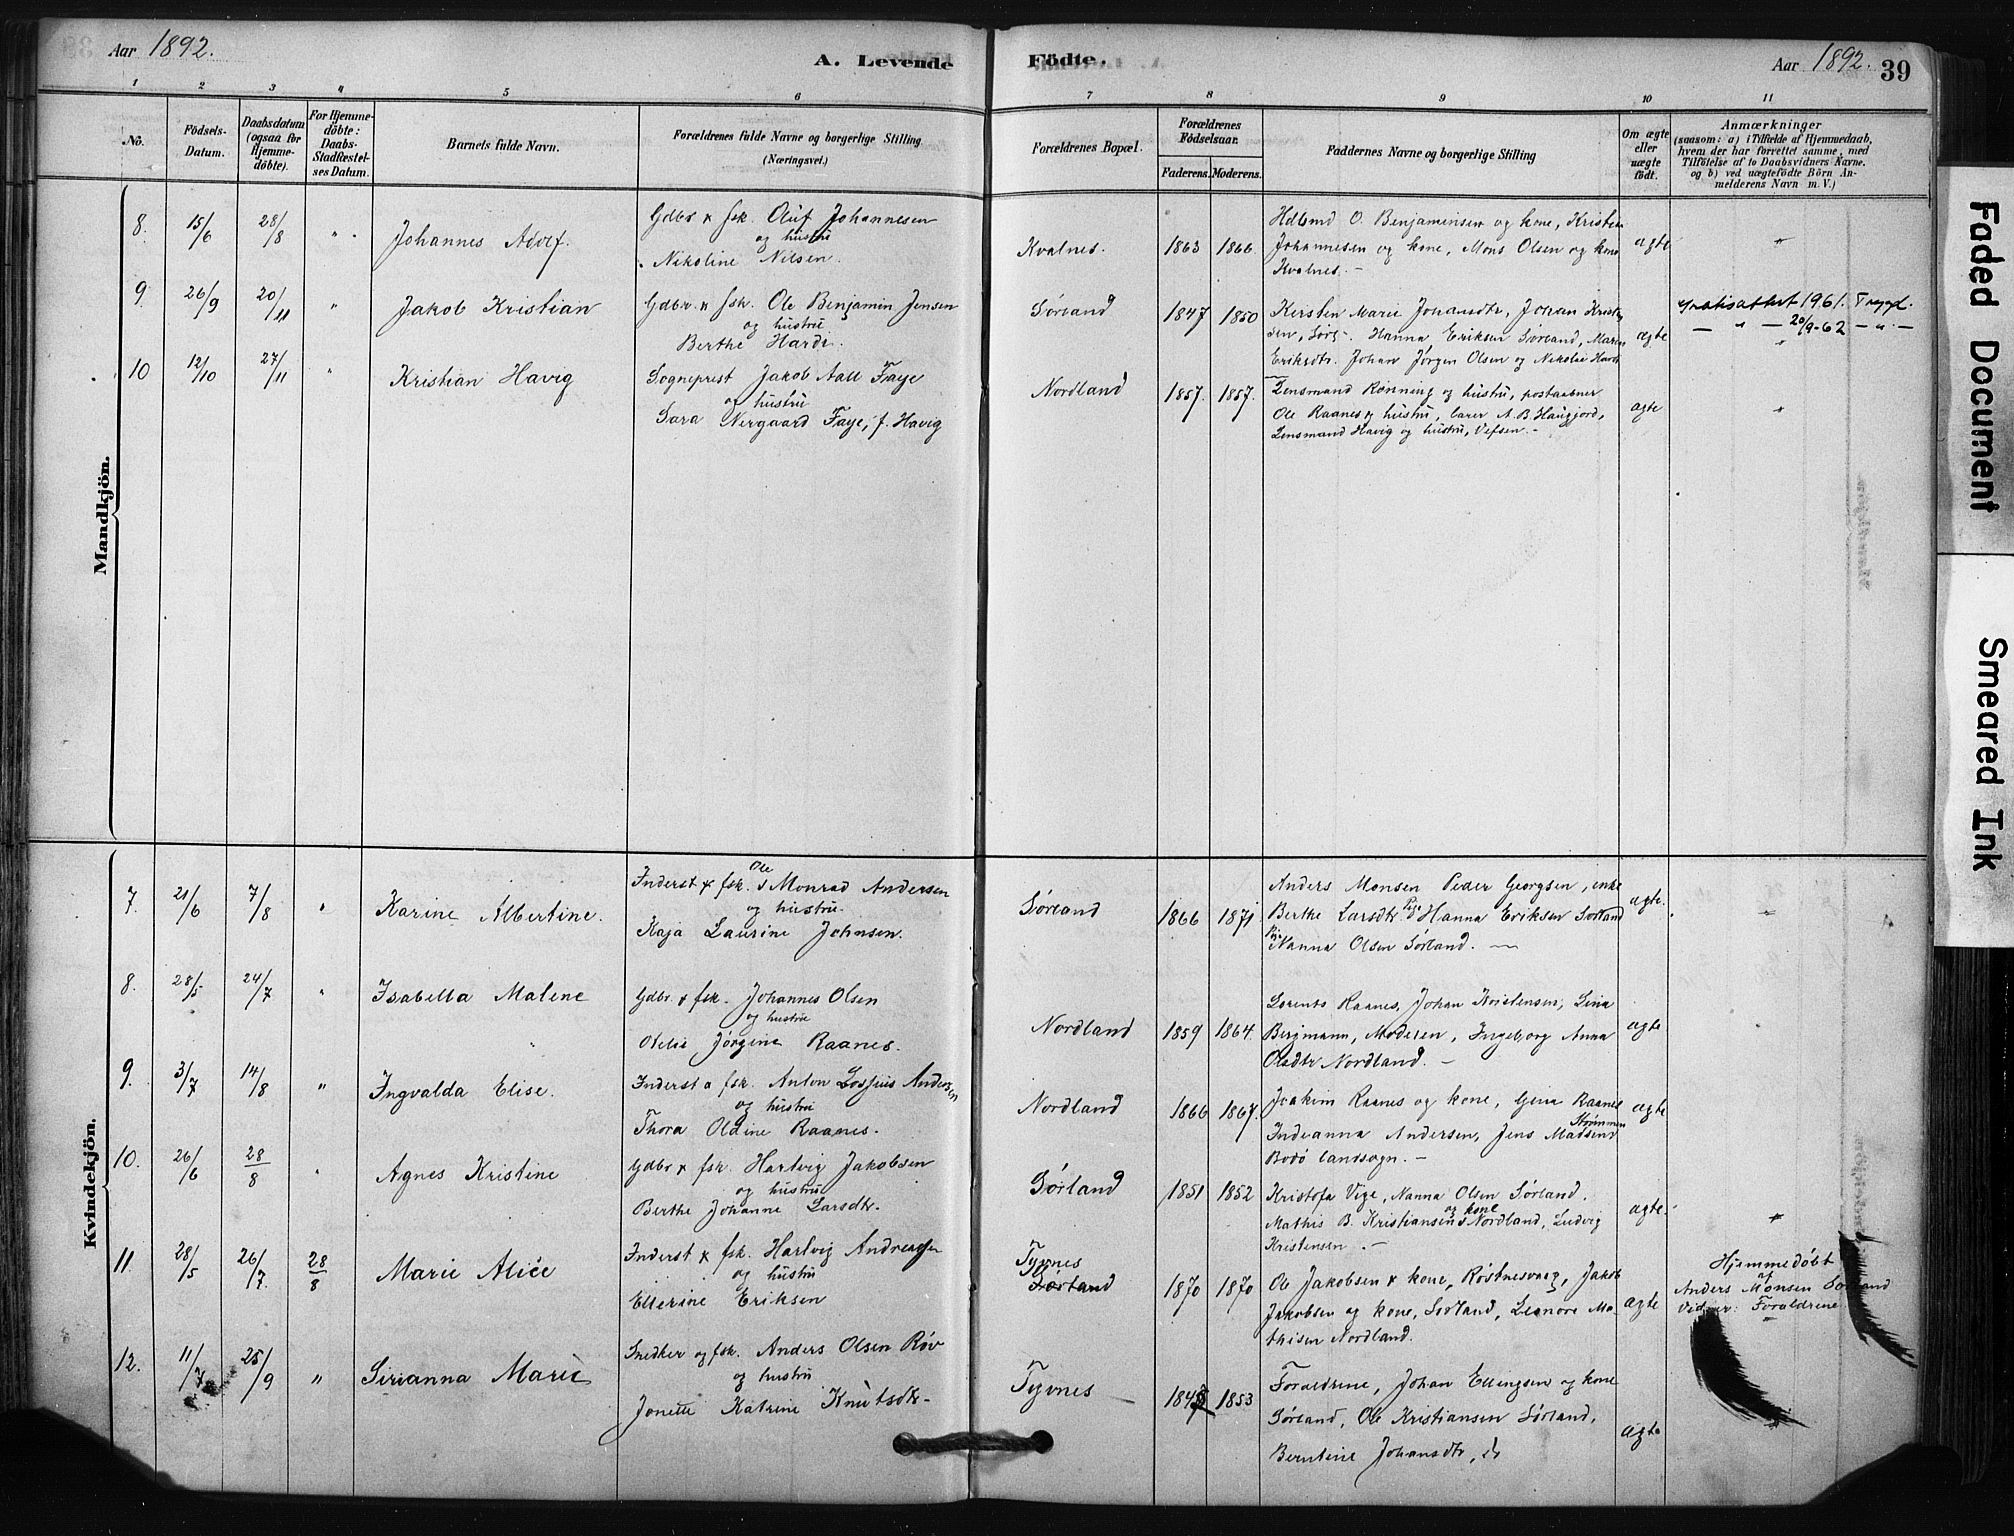 Aar 1892.
A. Levende
Födte.
Aar 1892.
39
1 2 3 4 5 6 7 8 9 10 11
No.
Födsels-Datum.
Daabsdatum (ogsaa for Hjemmedöbte).
For Hjemmedöbte: Daabs-Stadfæstelses Datum.
Barnets fulde Navn.
Forældrenes fulde Navne og borgerlige Stilling
(Næringsvei.)
Forældrenes Bopæl.
Forældrenes Födselsaar.
Faderens. Moderens.
Faddernes Navne og borgerlige Stilling
Om ægte eller uægte födt.
Anmærkninger
(saasom: a) i Tilfælde af Hjemmedaab,
hvem der har forrettet samme, med
Tilföielse af to Daabsvidners Navne.
og b) ved uægtefödte Börn An-
melderens Navn m. V.)
Mandkjön.
8. 15/6 28/8 " Johannes Adolf.
Gdbr & fsk. Oluf Johannesen
og hustru
Nikoline Nilsen.
Kvalnes. 1863 1866.
Hdlsmd O. Benjaminsen og kone, Kristian
Johannesen og kone, Mons Olsen og kone
Kvalnes. -
ægte "
9 26/9 20/11 " Jakob Kristian
Gdbr. & fsk. Ole Benjamin Jensen
og hustru
Berthe Hardi.
Sørland 1847 1850
Kersten Marie Johansdtr, Johan Krist
sen, Sørl. Hanna Eriksen Sørland, Maren
Eriksdtr. Johan Jørgen Olsen og Nikolai Hardi
ægte
Gratisattest 1961. Trygd.
— " — 20/9-62 — " —
"
10 12/10 27/11 " Kristian Havig
Sogneprest Jakob Aall Faye
og hustru
Sara Nergaard Faye, f. Havig
Nordland 1857. 1857.
Lensmand Rønning og hustru, postaabner
Ole Raanes & hustru, lærer A. B. Haugjord,
Lensmand Havig og hustru, Vefsen. -
ægte "
Kvindekjön.
7. 21/6 7/8 " Karine Albertine.
Inderst & fsk. Ole Monrad Andersen
og hustru.
Kaja Laurine Johnsen.
Sørland 1866 1871
Anders Monsen Peder Georgsen, enke
Berthe Larsdtr Pige Hanna Eriksen Sørland
Pige Nanna Olsen Sørland. —
ægte. "
8. 28/5 24/7 " Isabella Malene
Gdbr. & fsk. Johannes Olsen
og hustru
Otelie Jørgine Raanes.
Nordland 1859 1864.
Lorents Raanes, Johan Kristensen, Lina
Bergmann, Moderen, Ingeborg Anna
Olsdtr Nordland. -
ægte
9. 3/7 14/8 " Ingvalda Elise.
Inderst & fsk. Anton Lossius Andersen
og hustru
Thora Oldine Raanes.
Nordland 1866 1867.
Joakim Raanes og kone, Gina Raanes
Indianna Andersen, Jens Madsen Strømmen
Bodø landsogn. -
ægte
10. 26/6 28/8 " Agnes Kristine
Gdbr & fsk. Hartvig Jakobsen
og hustru
Berthe Johanne Larsdtr.
Sørland 1851 1852
Kristofa Vige, Nanna Olsen Sørland.
Mathis B. Kristiansen og kone Nordland, Ludvig
Kristensen. -
ægte. "
11 28/5 26/7. 28/8 Marie Alice
Inderst & fsk. Hartvig Andreassen
og hustru
Ellerine Eriksen
Tyvnes
Sørland
1870 1870
Ole Jakobsen & kone, Røstnesvaag, Jakob
Jakobsen og kone, Sørland, Leonore Ma-
thisen Nordland.
ægte
Hjemmedøbt
af
Anders Monsen Sørland
Vidner: Forældrene.
12. 11/7 25/9 " Sirianna Marie
Snedker og fsk. Anders Olsen Røv
og hustru
Jonette Katrine Knutsdtr-
Tyvnes 1853
Forældrene, Johan Ellingsen og kone
Sørland, Ole Kristiansen Sørland,
Berntine Johansdtr, do
ægte
Faded Document
Smeared Ink